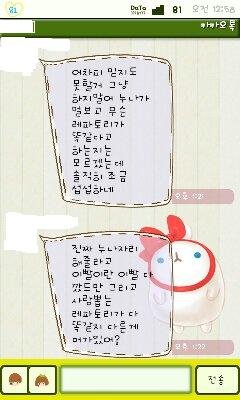 81
DaTa
81
오전 12:58
카카오톡
어차피 믿지도
못할거 그냥
하지말어 누나가
멀보고 무슨
레파토리가
똑같다고
하는지는
모르겠는데
솔직히 조금
섭섭하네
오후 1:21
진짜 누나자리
해줄라고
이빨이란 이빨 다
깠드만 그리고
사람뽑는
레파토리가 다
똑같지 다른게
머가있어?
오후 1:22
전송